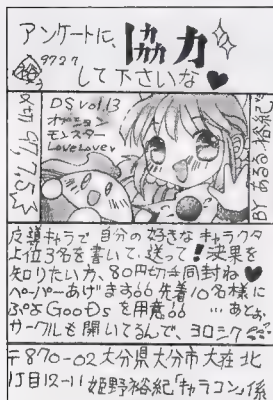 アンケートに、協力
裕 9727
して下さいな♥
〆切 97.1.53
DS vol.13
オプション
モンスター
LoveLove♥
BY あるる裕紀
魔導キャラで自分の好きなキャラクタ
上位3名を書いて、送って!結果を
知りたい方、80円切手同封ね♥
ペーパーあげます。。先着10名様に
ぷよGooDsを用意。。…あとぉ、
サークルも開いてるんで、ヨロシク
〒870-02 大分県大分市大在北
1丁目12-11 姫野裕紀「キャラコン」係